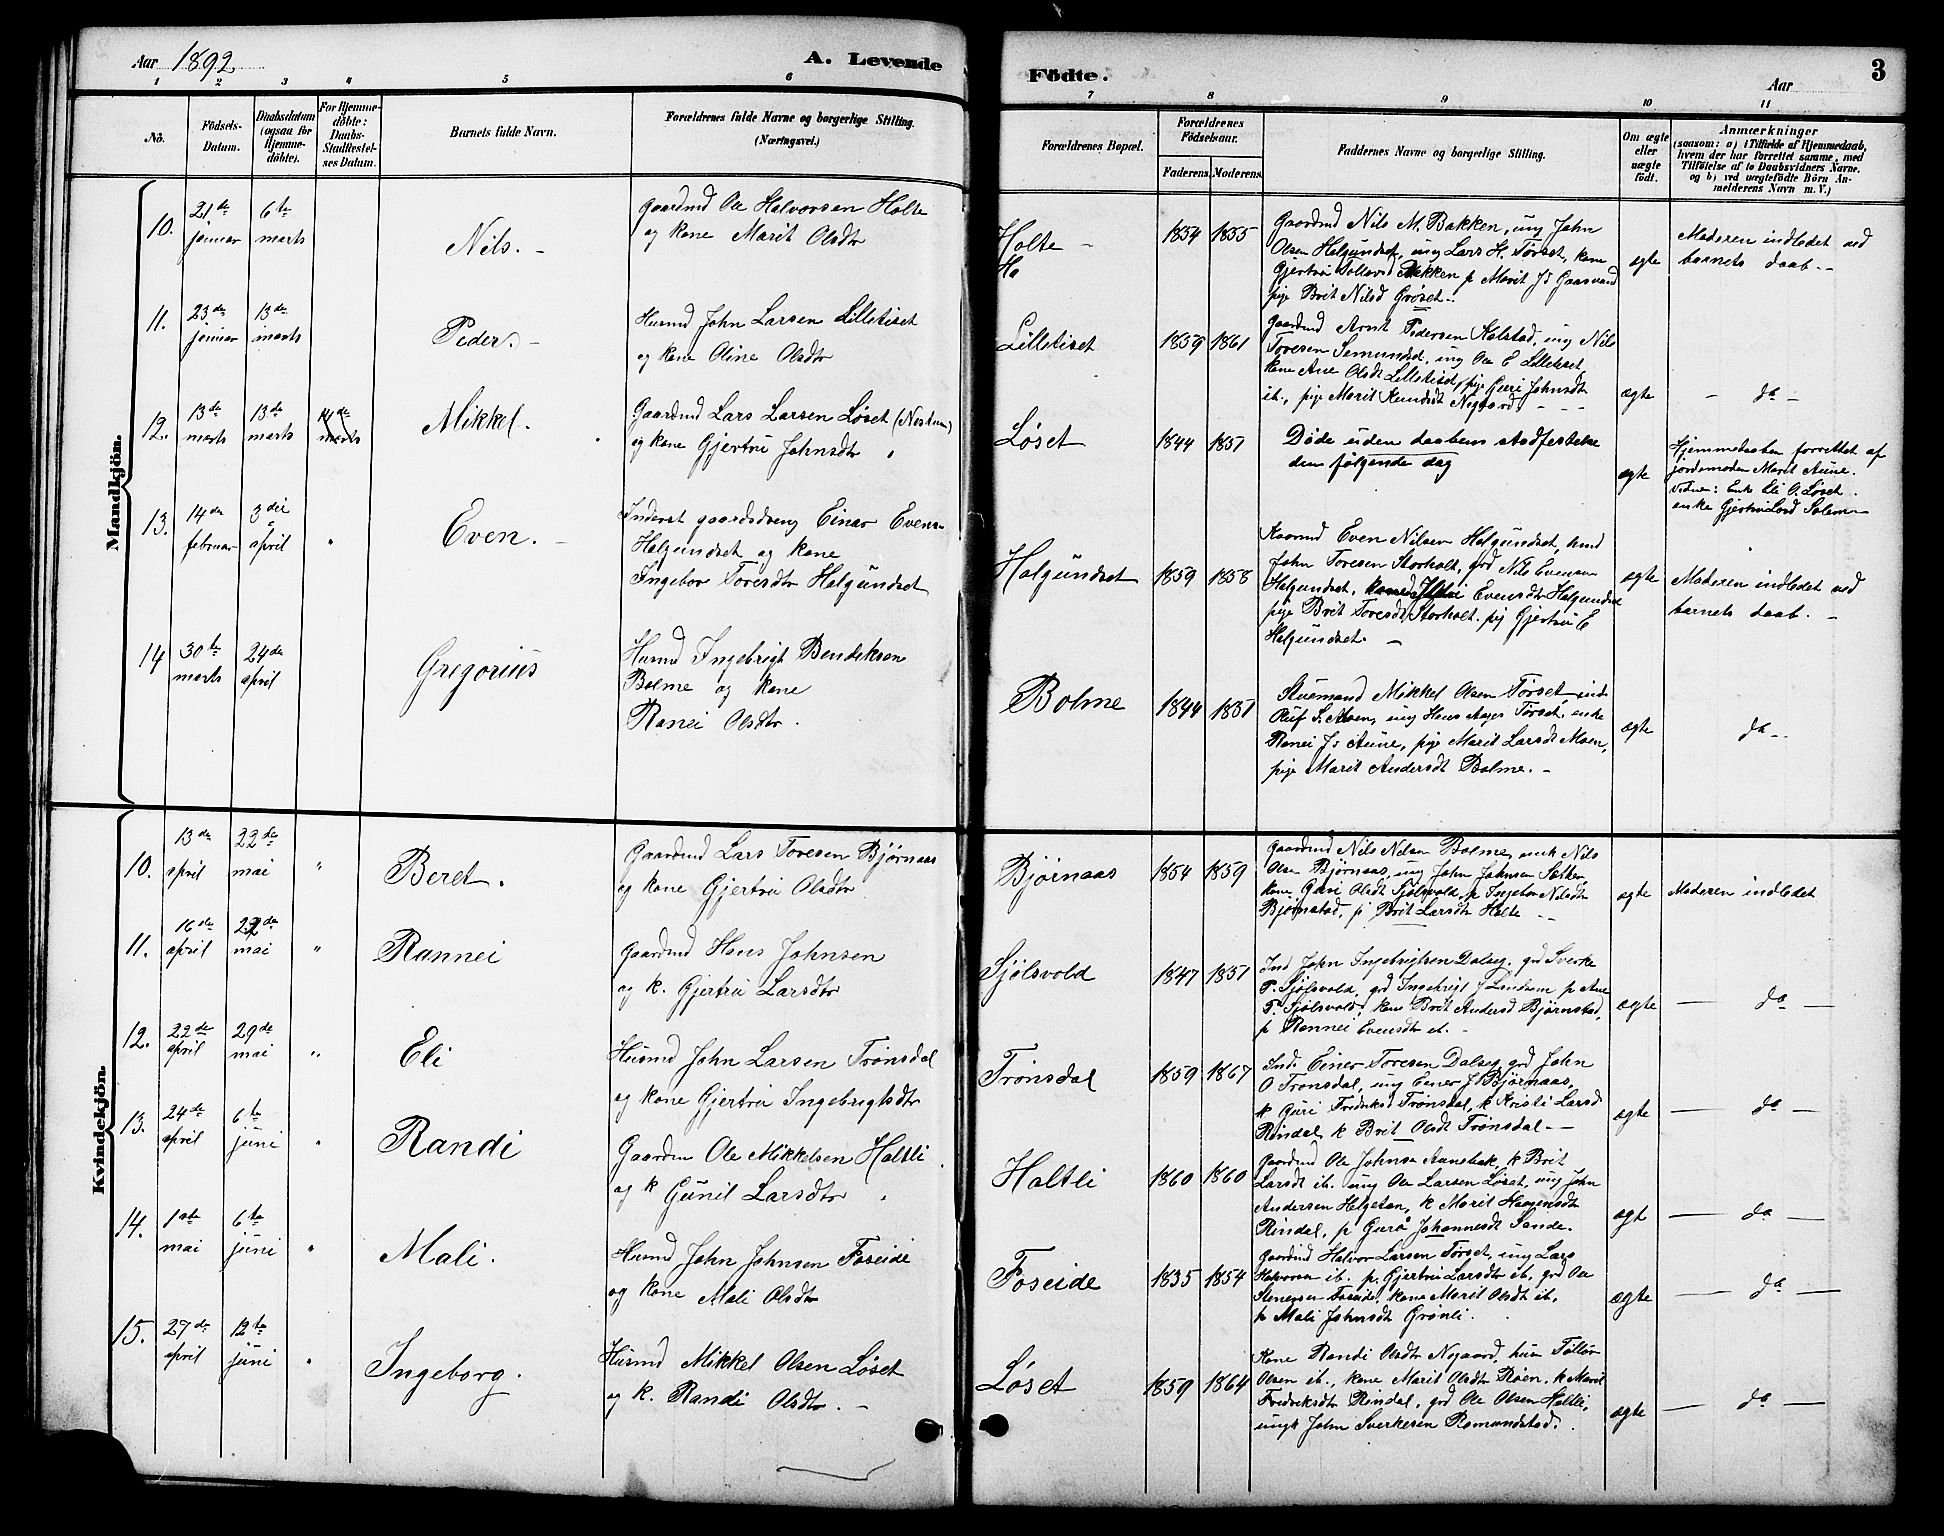 Aar 1892
A. Levende
Födte.
Aar
3
1 2 3 4 5 6 7 8 9 10 11
No.
Födsels-
Datum.
Daabsdatum
(ogsaa for
Hjemme-
döbte).
For Hjemme-
döbte:
Daabs-
Stadfæstel-
ses Datum.
Barnets fulde Navn.
Forældrenes fulde Navne og borgerlige Stilling.
(Næringsvei.)
Forældrenes Bopæl.
Forældrenes
Födselsaar.
Faderens. Moderens.
Faddernes Navne og borgerlige Stilling.
Om ægte
eller
uægte
födt.
Anmærkninger
(saasom: a) i Tilfælde af Hjemmedaab,
hvem der har forrettet samme, med
Tilföielse af to Daabsvidners Navne.
og b) ved uægtefödte Börn An-
melderens Navn m. V.)
Mandkjön.
10.
21de
januar
6te
marts
Nils. -
Gaardmd Ole Halvorsen Holte
og kone Marit Olsdtr
Holte -
Ho
1854 1855
Gaardmd Nils M. Bakken, ung John
Olsen Helgundset, ung Lars H. Tørset, kone
Gjertru Bakken p Marit
pige Brit Nilsd Grøset.
ægte
Moderen indledet ved
barnets daab. -
11.
23de
januar
13de
marts
Peder. -
Husmd John Larsen Lilletiset
og kone Oline Olsdtr
Lilletiset
1859 1861
Gaardmd Arnt Pedersen Kalstad, ung Nils
Toresen Semundset, ung Ole E Lilletiset,
kone Ane Olsdt Lilletiset, pige Guri Johnsdt
ib., pige Marit Knudsdt Nygaard. - - -
ægte
- da -
12.
13de
marts
13de
marts
14de
marts
Mikkel.
Gaardmd Lars Larsen Løset
og kone Gjertru Johnsdtr
Løset
1844 1851
Døde uden daabens stadfestelse
den følgende dag
ægte
Hjemmedaaben forrettet af
jordemoder Marit Aune.
Vidner: Enke Eli O. Løset.
enke Solem
13.
14de
februar
3die
april
"
Even. -
Inderst gaardsdreng Einar Evens-
Halgundset og kone
Ingebor Toresdtr Halgundset
Halgundset
1859 1858
Kaarmd Even Nilsen Halgundset,
John Toresen Storholt, grd Nils Evensen
Halgundset, Evensdtr Halgundset
pige Brit Toresdt Storholt. pig Gjertru E
Halgundset. -
ægte
Moderen indledet ved
barnets daab. -
14
30te
marts
24de
april
Gregorius
Husmd Ingebrigt Bendiksen
Bolme og kone
Ranei Olsdtr.
Bolme
1844 1851
Stuemand Mikkel Olsen Tørset, ind
Oluf S. Moen, ung Hans Tørset, enke
Ranei J's Aune, pige Marit Larsdt Moen,
pige Marit Andersdt Bolme. -
ægte
da -
Kvindekjön.
10.
13de
april
22de
mai
"
Beret.
Gaardmd Lars Toresen Bjørnaas
og kone Gjertru Olsdtr
Bjørnaas
1854 1859
Gaardmd Nils Nelsen Bolme, enk Nils
Olsen Bjørnaas, ung John Johnsen Sætter,
kone Guri Olsdt Sjølsvold, p Ingebor Nilsdtr
Bjørnstad, p Brit Larsdtr Holte - -
ægte
Moderen indledet
11.
16de
april
22de
mai
"
Rannei
Gaardmd Hans Johnsen
og k. Gjertru Larsdtr
Sjølsvold
1847 1851
Ind John Ingebrigtsen Dalseg. grd Sverke
P. Sjølsvold, grd Ingebrigt J Landsem p Ane
P. Sjølsvold, kone Brit Andersd Bjørnstad,
p Rannei Evensdtr ib. -
ægte
- da -
12.
22de
april
29de
mai
"
Eli
Husmd John Larsen Trønsdal
og kone Gjertru Ingebrigtsdtr
Trønsdal
1859 1867
Ind. Einer Toresen Dalseg, grd John
O Trønsdal, ung Einer J. Bjørnaas,
k Guri Fredriksd Trønsdal, k Kristi Larsd
Rindal, k Brit Olsdt Trønsdal - -
ægte
- da -
13.
24de
april
6te
juni
"
Randi
Gaardm Ole Mikkelsen Holtli.
og k Gunil Larsdtr
Holtli
1860 1860
Gaardmd Ole Johnsen Aunebak, k Brit
Larsdt ib. ung Ole Larsen Løset, ung John
Andersen Helgetun, k Marit Haagensdt
Rindal, p Guro Johannesdt Sande.
ægt
- da -
14.
1ste
mai
6te
juni
"
Mali.
Husmd John Johnsen Foseide
og kone Mali Olsdtr
Foseide
1835 1854
Gaardmd Halvor Larsen Tørset, ung Lars
Halvorsen ib. p. Gjertru Larsdtr ib., grd Ole
Steneysen Foseide, kone Marit Olsdt ib.
p Mali Johnsdt Grønli.
ægte
- da -
15.
27de
april
12te
juni
"
Ingeborg.
Husmd Mikkel Olsen Løset
og k. Randi Olsdtr. -
Løset
1859 1864
Kone Randi Olsdtr Nygaard,
Olsen ib., kone Marit Olsdtr Røen, k Marit
Fredriksdtr Rindal, grd Ole Olsen Holtli,
ungk John Sverkesen Romundstad.
ægte
- da -